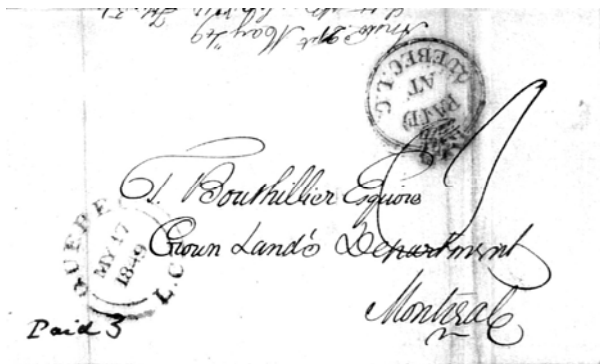 May 49
QUEBEC. L.C.
PAID
AT
T. Bouthillier Esquire
Crown Land's Department
Montreal
QUEBEC
MY 17
1849
L.C.
Paid 3